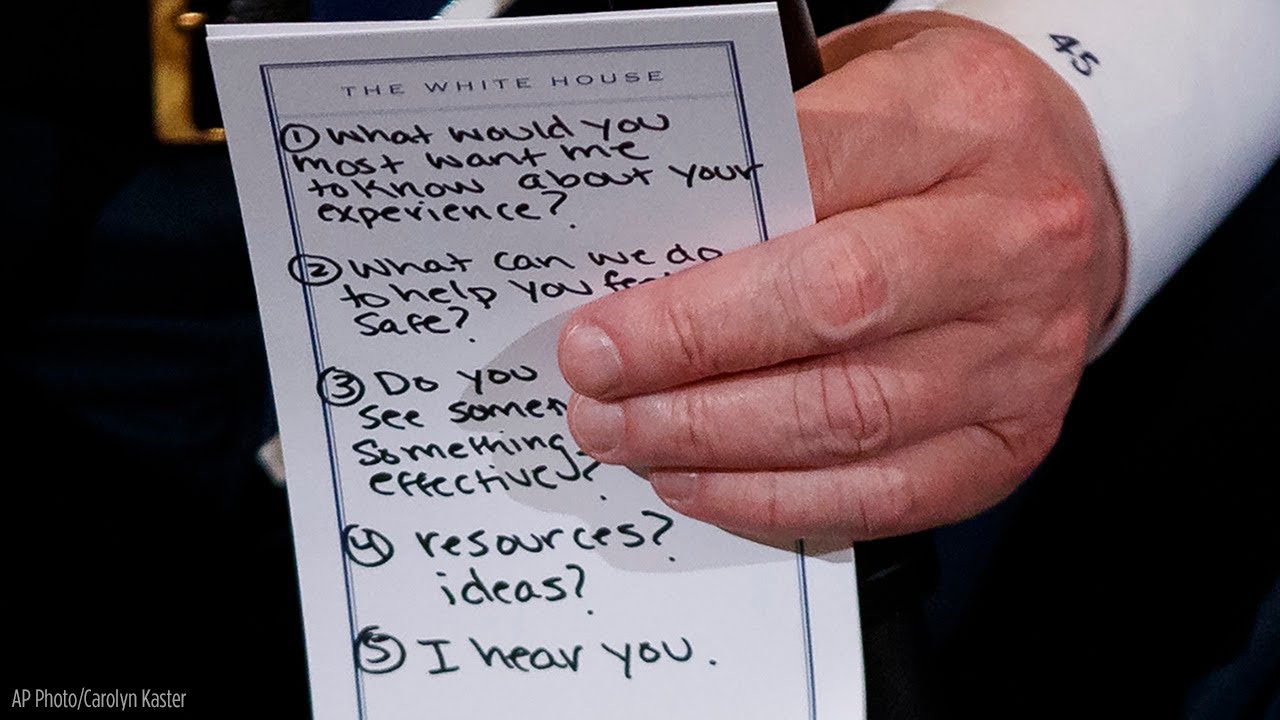 THE WHITE HOUSE
45
① What would you
most want me
to know about your
experience?
② What can we do
to help you
safe?
③ Do you
see
something
effective?
④ resources?
ideas?
⑤ I hear you.
AP Photo/Carolyn Kaster